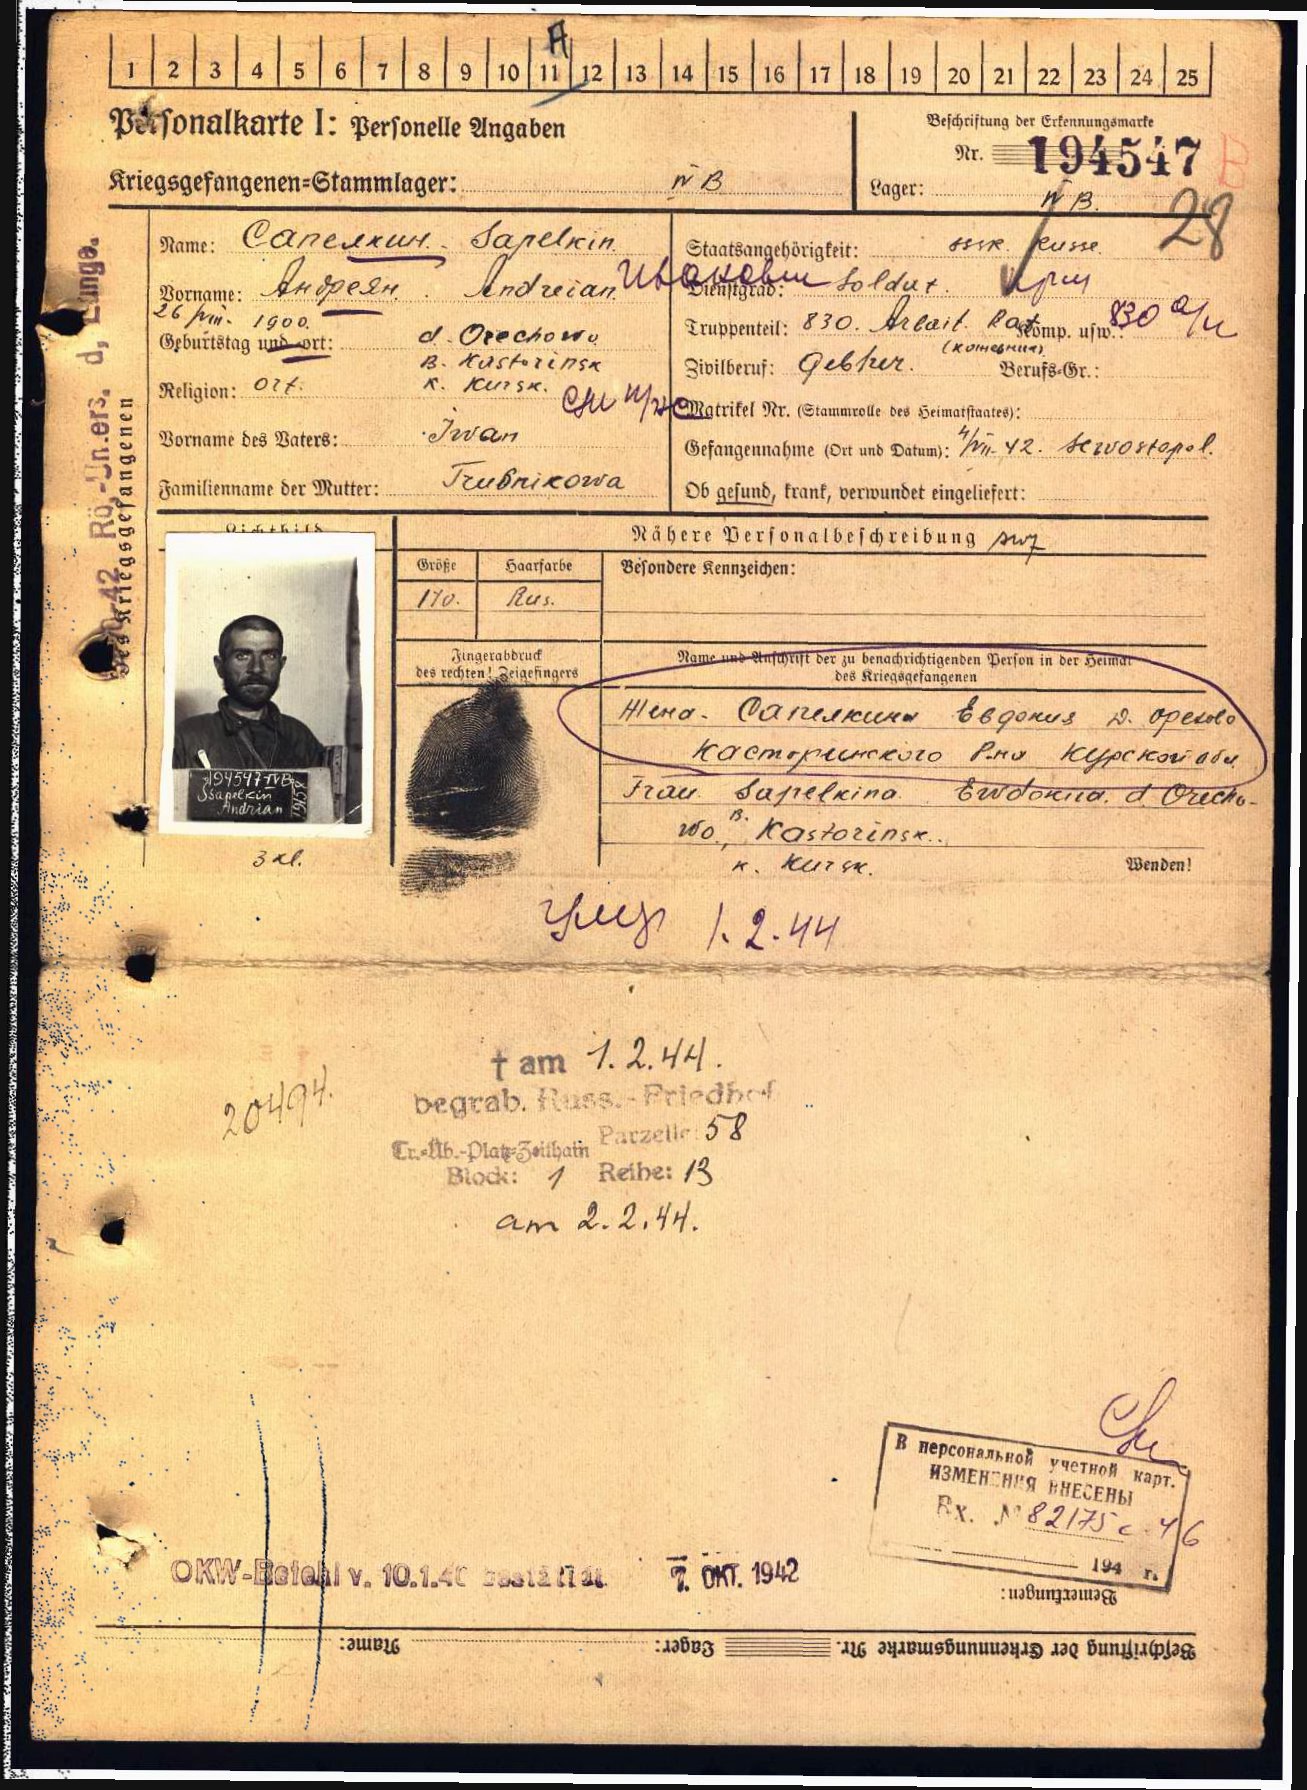 A
1 2 3 4 5 6 7 8 9 10 11 12 13 14 15 16 17 18 19 20 21 22 23 24 25
Personalkarte I: Personelle Angaben
Beschriftung der Erkennungsmarke
Nr. 194547
B
Kriegsgefangenen=Stammlager: IV B
Lager: IV B.
28
Name: Сапелкин. Sapelkin.
Staatsangehörigkeit: Russe.
Vorname: Андреян. Andreian. Иванович
Dienstgrad: Soldat.
26 VIII. 1900.
Geburtstag und =ort: d. Orechowo
B. Kastorinsk
K. Kursk.
Truppenteil: 830. Arbeit. Bat. Komp. usw.: 830
Zivilberuf: Gerber. Berufs=Gr.:
Religion: Ort.
Matrikel Nr. (Stammrolle des Heimatstaates):
Vorname des Vaters: Iwan
Gefangennahme (Ort und Datum): 4/VII. 42. Sewostopol.
Familienname der Mutter: Trubnikowa
Ob gesund, krank, verwundet eingeliefert:
des Kriegsgefangenen
42 Rö.-Un.ers. d. Lunge.
Lichtbild
Nähere Personalbeschreibung
Größe
Haarfarbe
Besondere Kennzeichen:
170.
Rus.
Fingerabdruck
des rechten! Zeigefingers
Name und Anschrift der zu benachrichtigenden Person in der Heimat
des Kriegsgefangenen
Жена. Сапелкина Евдокия д. Орехово
Касторинского Р-на Курской обл
Frau Sapelkina Ewdokiia. d Orecho-
wo. B. Kastorinsk..
K. Kursk.
Wenden!
194547 IV B
Ssapelkin
Andrian
3 Kl.
1.2.44
† am 1.2.44.
begrab. Russ.-Friedhof
20494.
Parzelle: 58
Tr.=Üb.=Platz=Zeithain
Block: 1 Reihe: 13
am 2.2.44.
В персональной учетной карт.
ИЗМЕНЕНИЯ ВНЕСЕНЫ
Вх. № 82175 с 46
194 г.
OKW-Befehl v. 10.1.40 bestätigt
7. OKT. 1942
Bemerkungen:
Beschriftung der Erkennungsmarke Nr. Lager: Name: